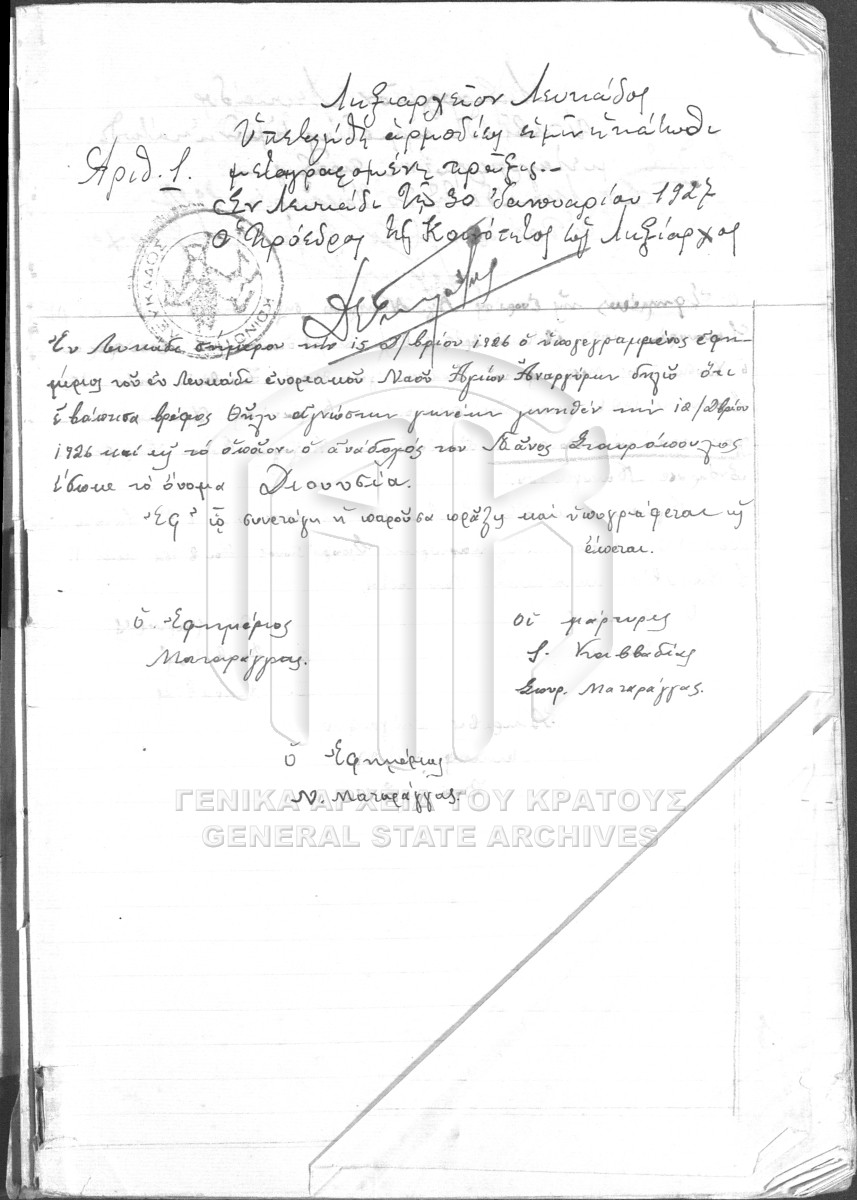 Ληξιαρχεῖον Λευκάδος
Ὑπεβλήθη ἁρμοδίως ἡμῖν ἡ κάτωθι
Ἀριθ. 1. μεταγραφομένη πρᾶξις.—
Ἐν Λευκάδι τῇ 30 Ἰανουαρίου 1927
Ὁ Πρόεδρος τῆς Κοινότητος ὡς Ληξίαρχος
ΛΕΥΚΑΔΟΣ
Ἐν Λευκάδι σήμερον τὴν 15 Δ/βρίου 1926 ὁ ὑπογεγραμμένος ἐφη-
μέριος τοῦ ἐν Λευκάδι ἐνοριακοῦ Ναοῦ Ἁγίων Ἀναργύρων δηλῶ ὅτι
ἐβάπτισα βρέφος θῆλυ ἀγνώστων γονέων γεννηθὲν τὴν 12/Δβρίου
1926 καὶ εἰς τὸ ὁποῖον ὁ ἀνάδοχός του Πᾶνος Σταυρόπουλος
ἔδωκε τὸ ὄνομα Διονυσία.
Ἐφ' ᾧ συνετάγη ἡ παροῦσα πρᾶξις καὶ ὑπογράφεται ὡς
ἕπεται.
ὁ Ἐφημέριος
Ματαράγγας.
Οἱ μάρτυρες
Σ. Καββαδίας
Σπυρ. Ματαράγγας.
ὁ Ἐφημέριος
Ν. Ματαράγγας.
ΓΕΝΙΚΑ ΑΡΧΕΙΑ ΤΟΥ ΚΡΑΤΟΥΣ
GENERAL STATE ARCHIVES